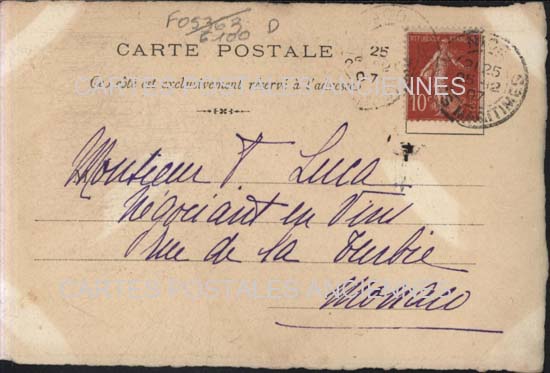 F05363 D
6100
CARTE POSTALE
Ce côté est exclusivement réservé à l'adresse
CARTES POSTALES ANCIENNES
REPUBLIQUE FRANÇAISE
10
25
07
25
12
07
MARITIMES
Monsieur T Luca
Négociant en Vins
Rue de la Turbie
CARTES POSTALES ANCIENNES
Monaco